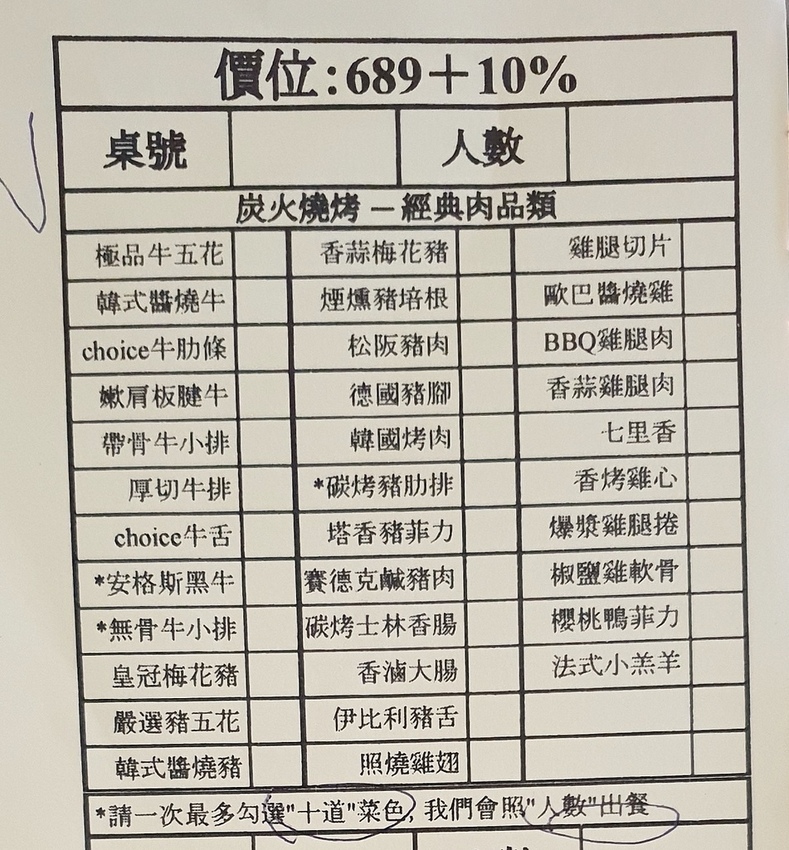 價位:689+10%
桌號 人數
炭火燒烤－經典肉品類
極品牛五花 香蒜梅花豬 雞腿切片
韓式醬燒牛 煙燻豬培根 歐巴醬燒雞
choice牛肋條 松阪豬肉 BBQ雞腿肉
嫩肩板腱牛 德國豬腳 香蒜雞腿肉
帶骨牛小排 韓國烤肉 七里香
厚切牛排 *碳烤豬肋排 香烤雞心
choice牛舌 塔香豬菲力 爆漿雞腿捲
*安格斯黑牛 賽德克鹹豬肉 椒鹽雞軟骨
*無骨牛小排 碳烤士林香腸 櫻桃鴨菲力
皇冠梅花豬 香滷大腸 法式小羔羊
嚴選豬五花 伊比利豬舌
韓式醬燒豬 照燒雞翅
*請一次最多勾選"十道"菜色, 我們會照"人數"出餐